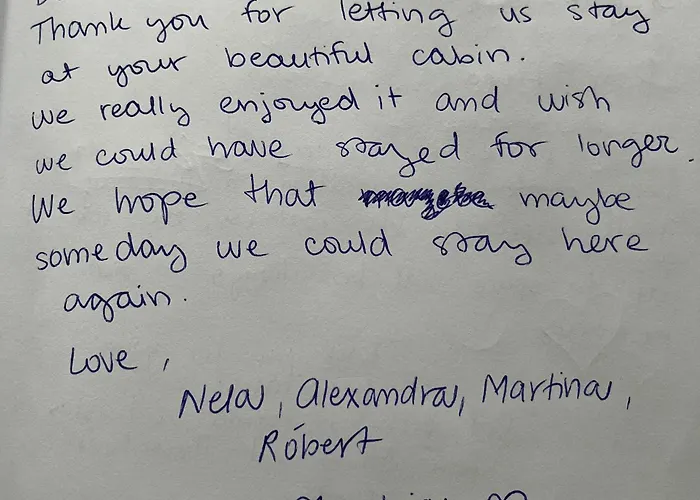 Thank you for letting us stay
at your beautiful cabin.
We really enjoyed it and wish
we could have stayed for longer.
We hope that maybe
someday we could stay here
again.
Love,
Nela, Alexandra, Martina,
Róbert